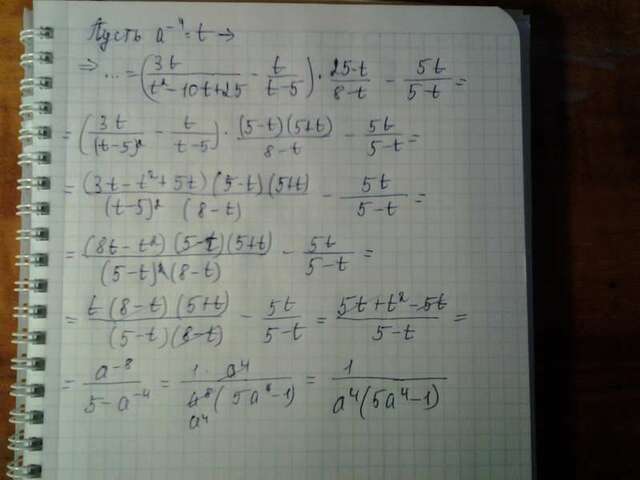 Пусть a⁻⁴=t →
⇒ ... = (3t/(t²-10t+25) - t/(t-5)) · (25-t)/(8-t) - 5t/(5-t) =
= (3t/(t-5)² - t/(t-5)) · (5-t)(5+t)/(8-t) - 5t/(5-t) =
= (3t-t²+5t)(5-t)(5+t)/((t-5)² (8-t)) - 5t/(5-t) =
= (8t-t²)(5-t)(5+t)/((5-t)²(8-t)) - 5t/(5-t) =
= t(8-t)(5+t)/((5-t)(8-t)) - 5t/(5-t) = (5t+t²-5t)/(5-t) =
= a⁻⁸/(5-a⁻⁴) = 1·a⁴/(a⁸(5a⁴-1)) = 1/(a⁴(5a⁴-1))
a⁴